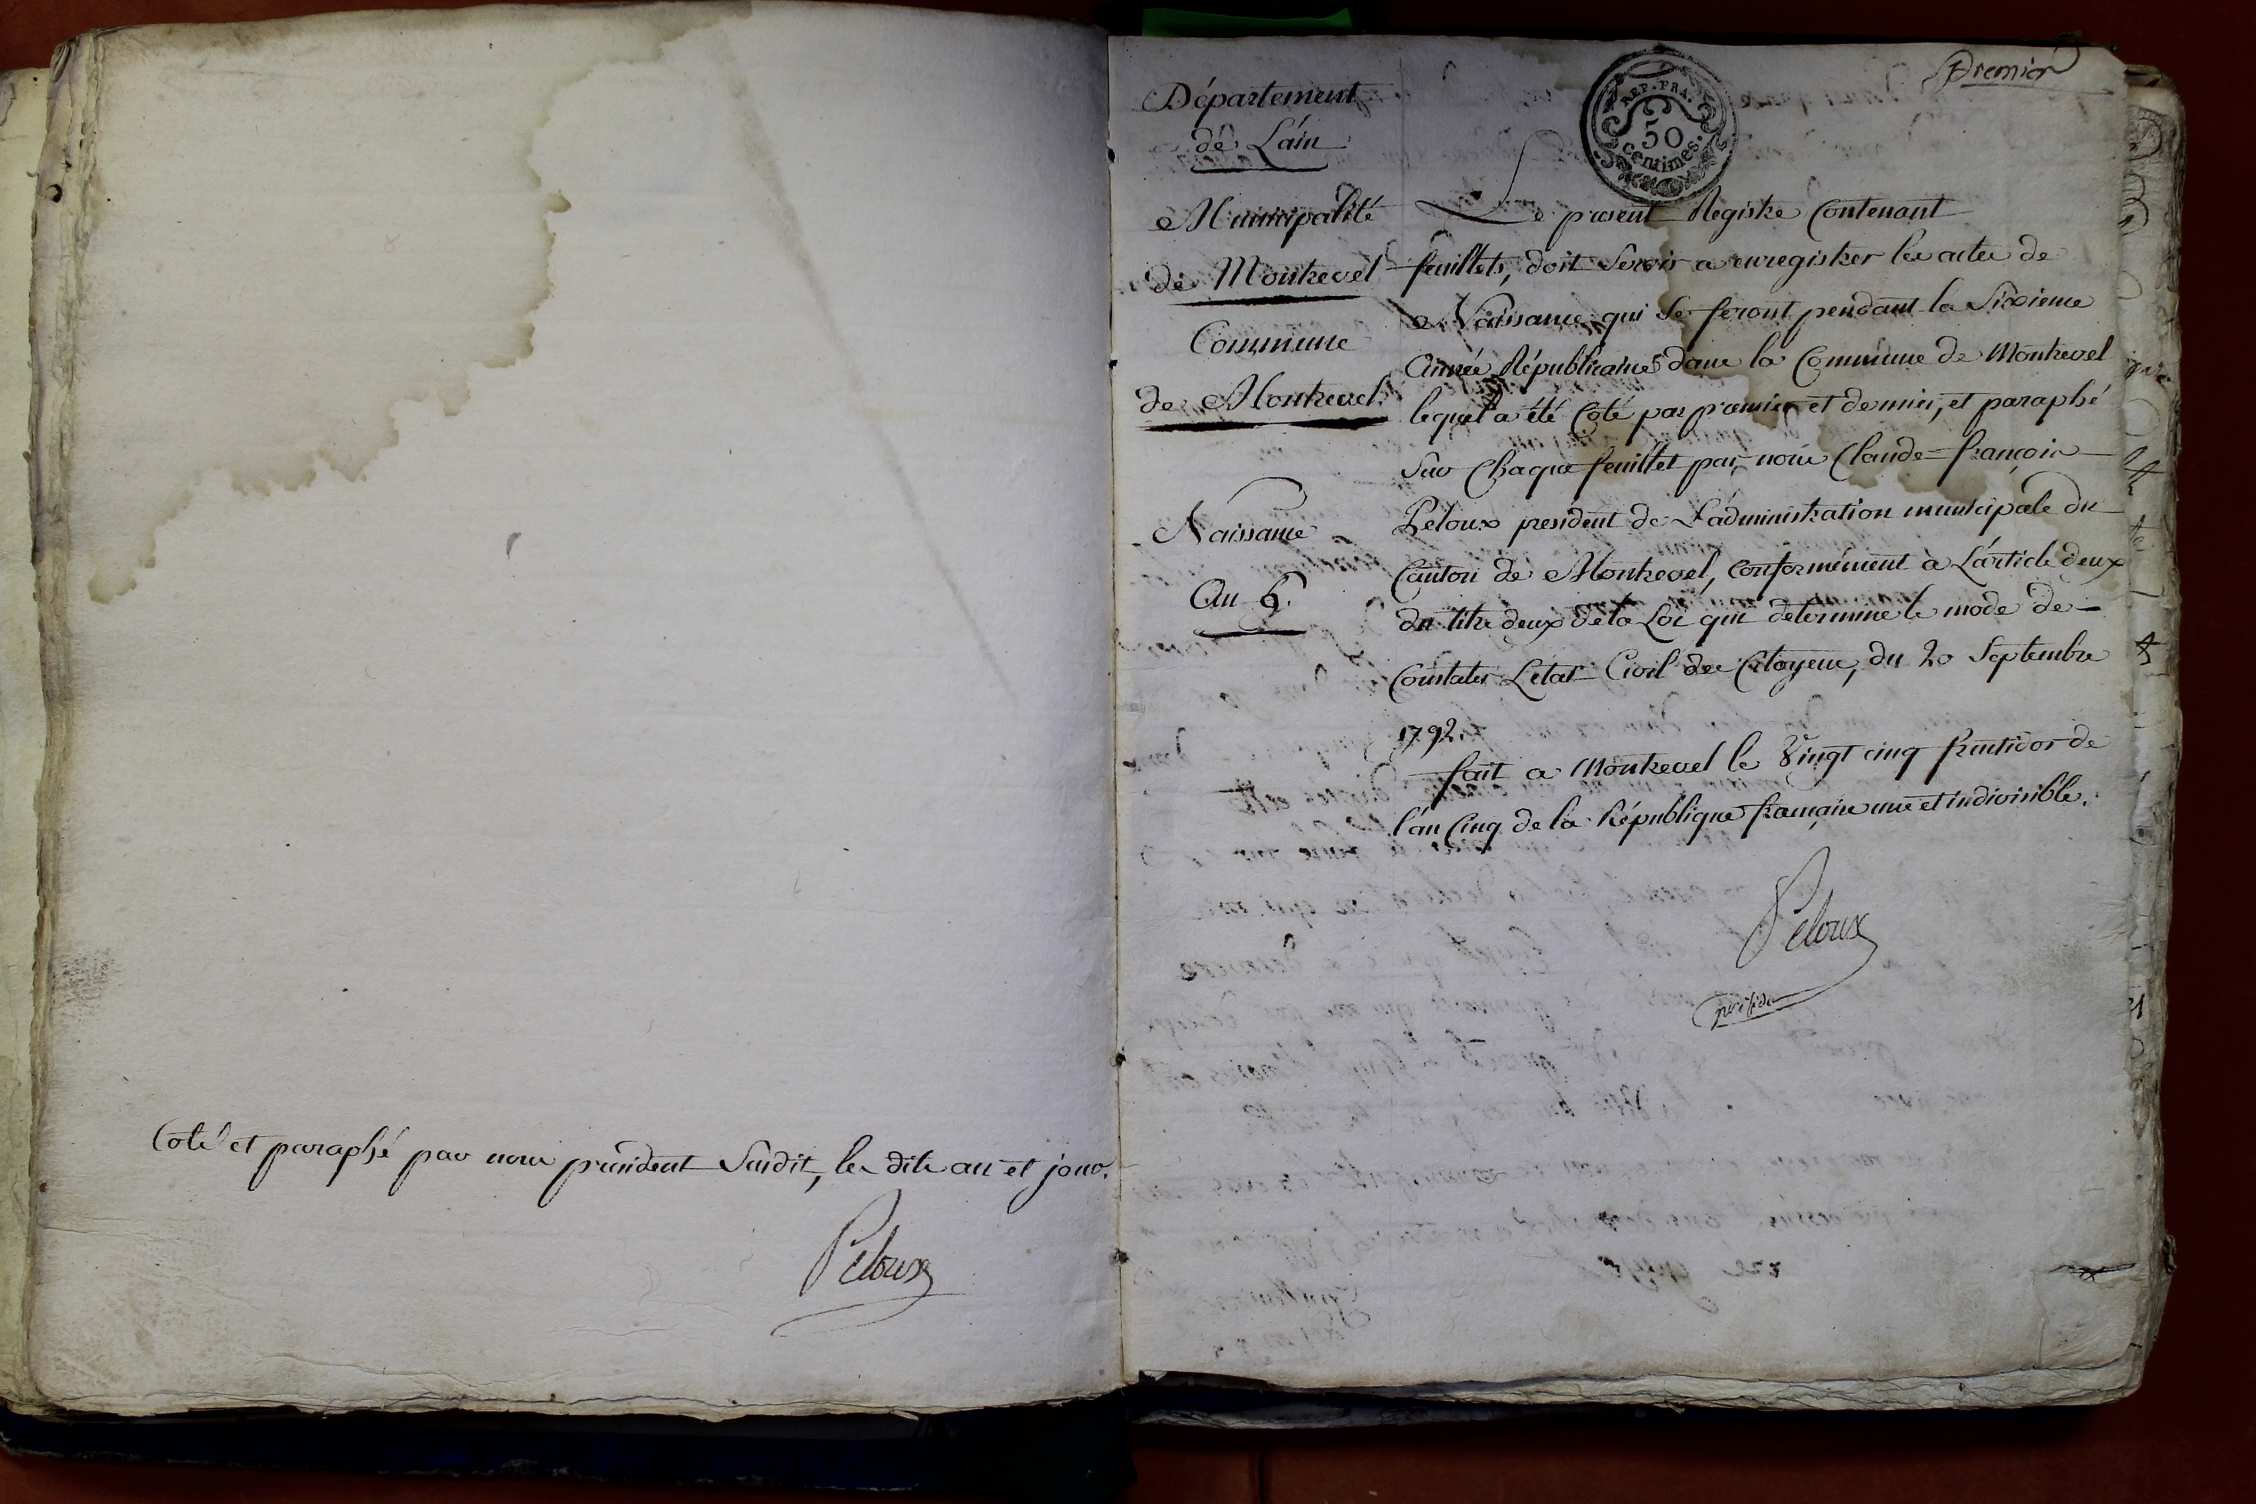 Coté et paraphé par nous président Susdit, les dits an et jour.
Peloux
Premier
REP. FRA.
50
centimes.
Département
de L'ain
Municipalité
de Montrevel
Commune
de Montrevel.
Naissance
An 6.
Le présent Registre Contenant
feuillets, doit Servir a enregistrer les actes de
Naissance qui Se feront pendant la Sixieme
Année Républicaine dans la Commune de Montrevel
lequel a été Coté par premier et dernier, et paraphé
Sur Chaque feuillet par nous Claude=françois
Peloux president de L'administration municipale du
Canton de Montrevel, conformément à L'article deux
du titre deux de la Loi qui determine le mode de
Constater L'etat Civil des Citoyens, du 20 Septembre
1792.
fait a Montrevel le Vingt cinq fructidor de
l'an Cinq de la République française une et indivisible.
Peloux
présidt